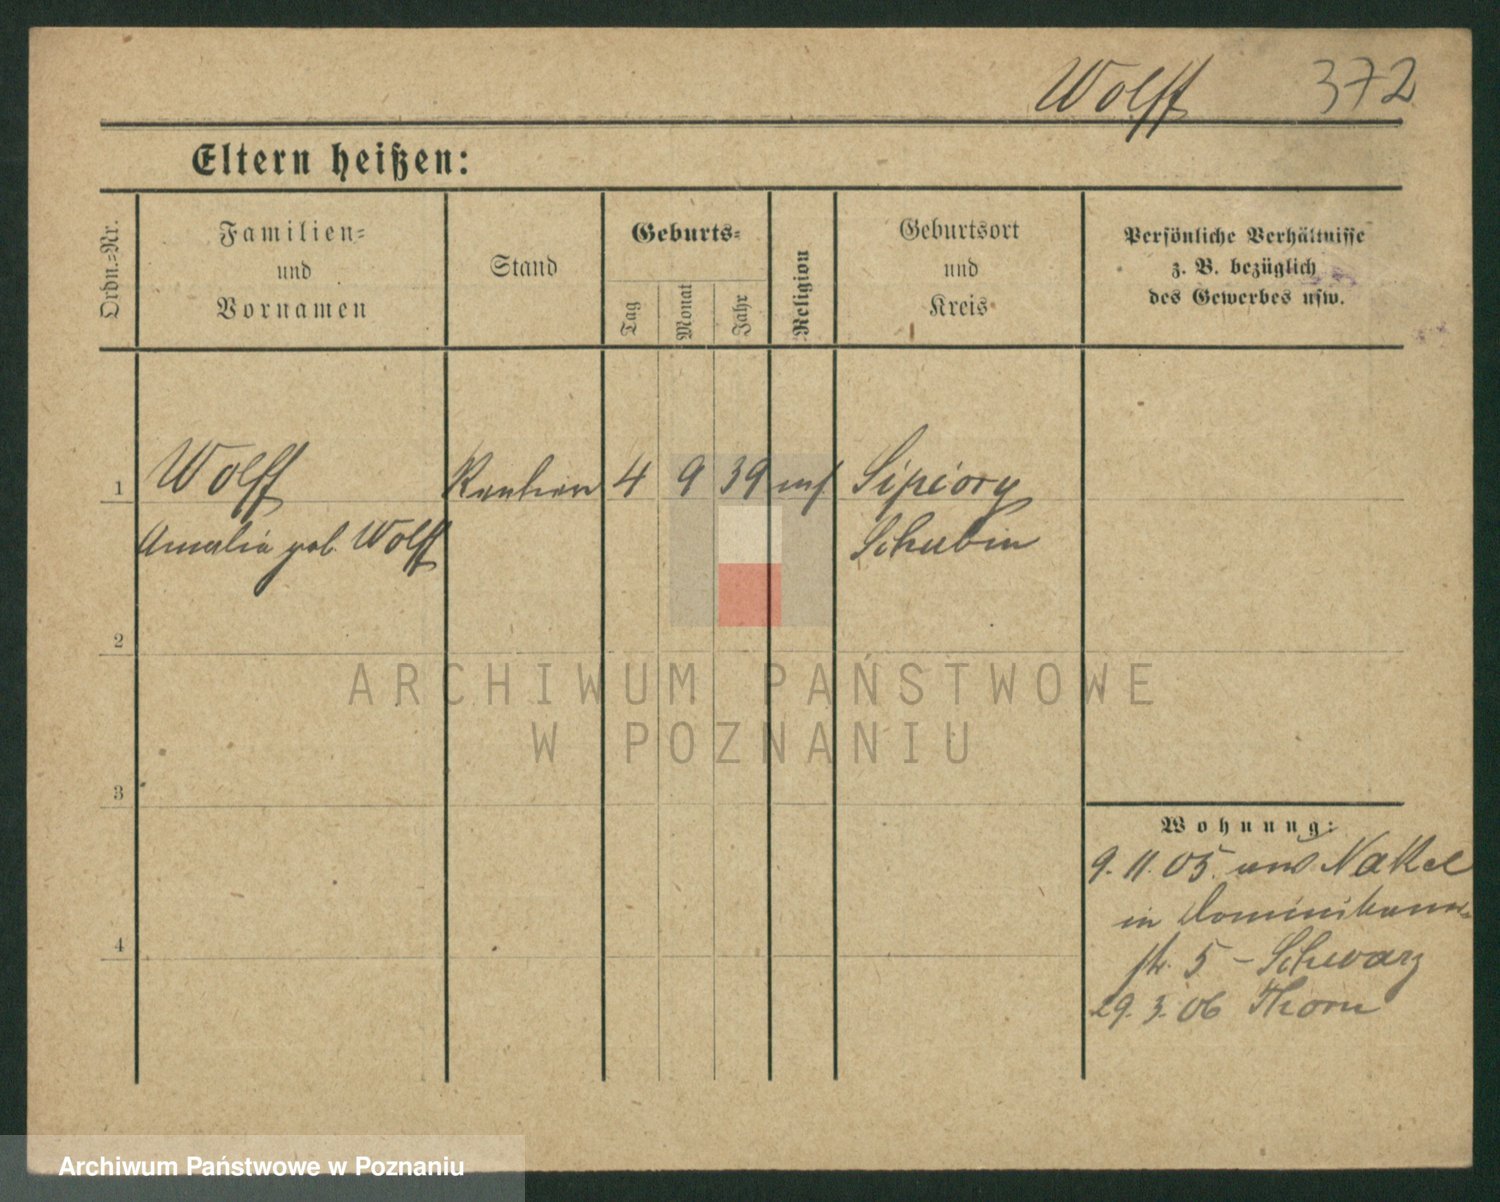 Wolff 372
Eltern heißen:
Ordn.-Nr.
Familien-
und
Vornamen
Stand
Geburts-
Tag
Monat
Jahr
Religion
Geburtsort
und
Kreis
Persönliche Verhältnisse
z. B. bezüglich
des Gewerbes usw.
1 Wolff 4 9 39 Sipiory
Amalia geb. Wolff Schubin
2
ARCHIWUM PAŃSTWOWE
W POZNANIU
3
Wohnung:
9. 11. 05. aus Nakel
in Dominikaner-
str. 5 - Schwarz
4
29. 3. 06 Thorn
Archiwum Państwowe w Poznaniu